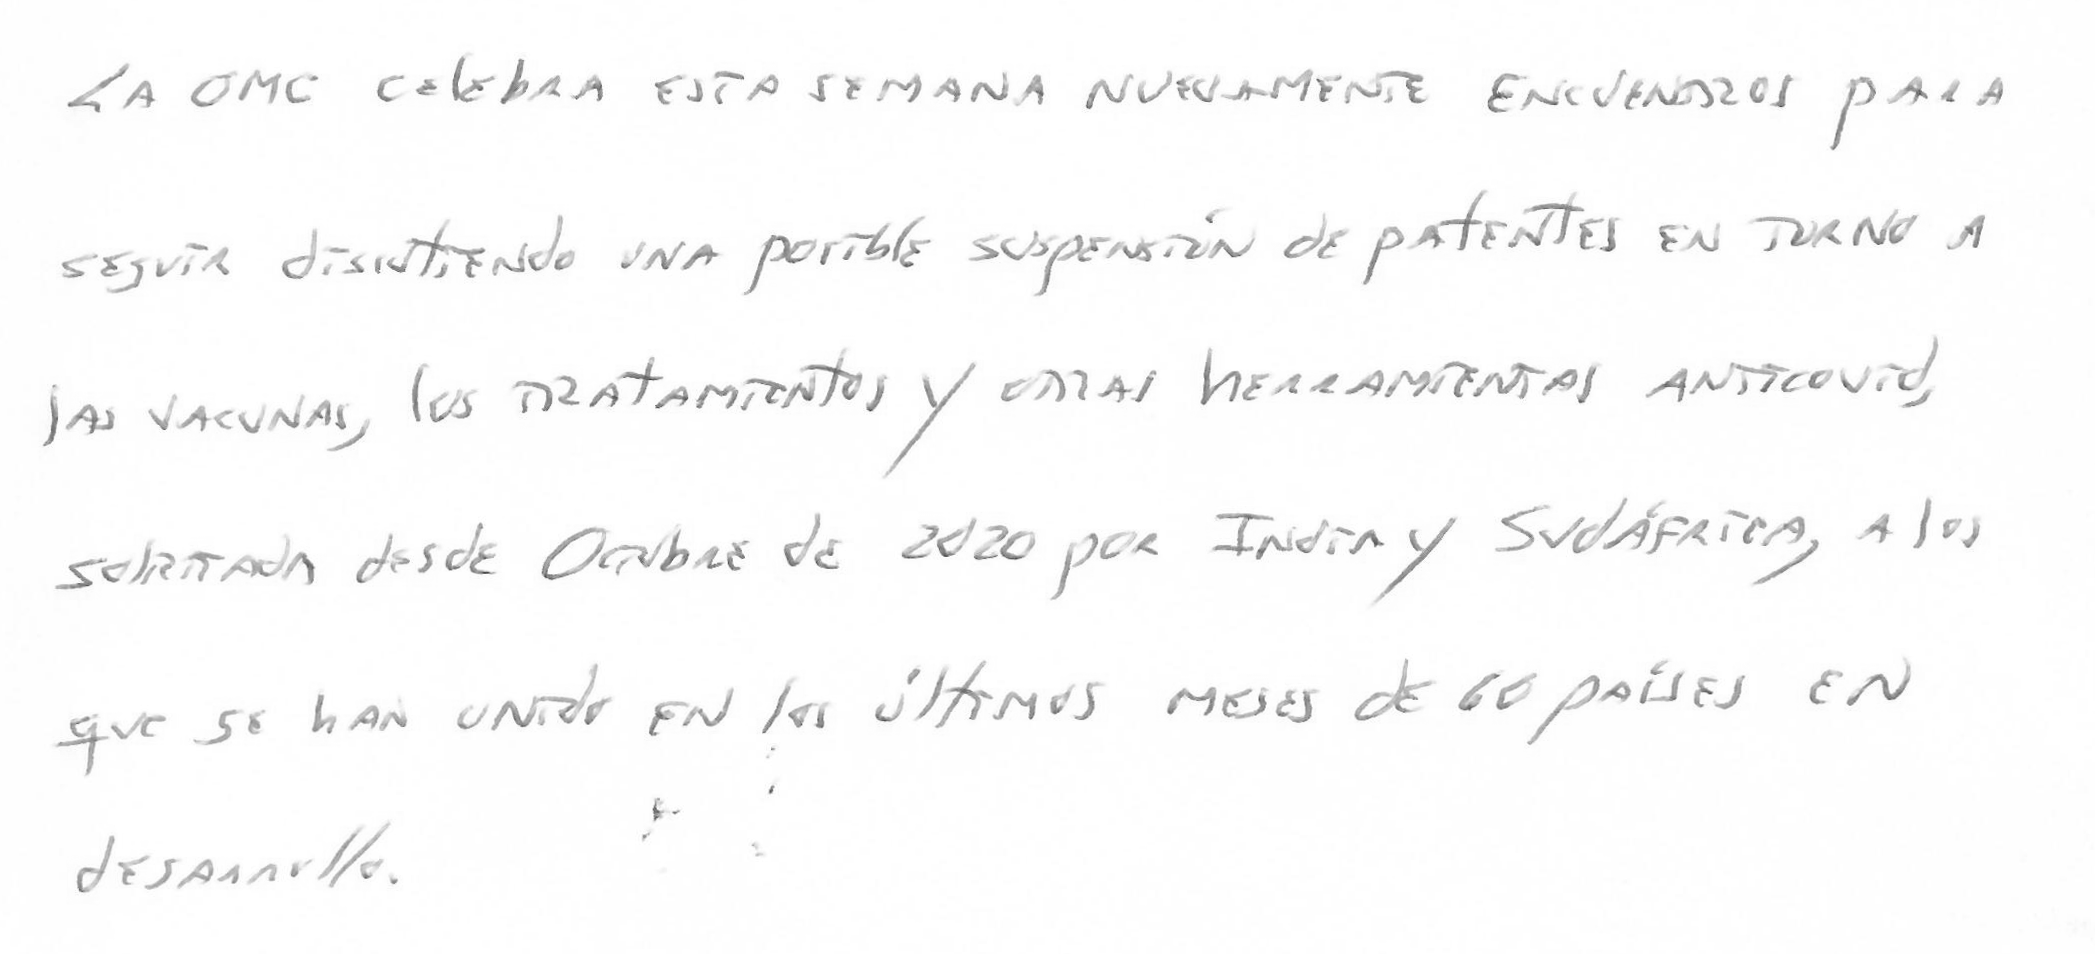 La OMC celebra esta semana nuevamente encuentros para
seguir discutiendo una posible suspensión de patentes en torno a
las vacunas, los tratamientos y otras herramientas anticovid,
solicitada desde Octubre de 2020 por India y Sudáfrica, a los
que se han unido en los últimos meses de 60 países en
desarrollo.